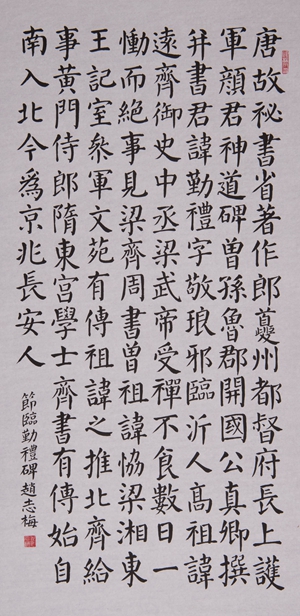 唐故祕書省著作郎夔州都督府長上護
軍顏君神道碑曾孫魯郡開國公真卿撰
并書君諱勤禮字敬琅邪臨沂人髙祖諱
遠齊御史中丞梁武帝受禪不食數日一
慟而絕事見梁齊周書曾祖諱協梁湘東
王記室叅軍文苑有傳祖諱之推北齊給
事黃門侍郎隋東宮學士齊書有傳始自
南入北今爲京兆長安人
節臨勤禮碑趙志梅